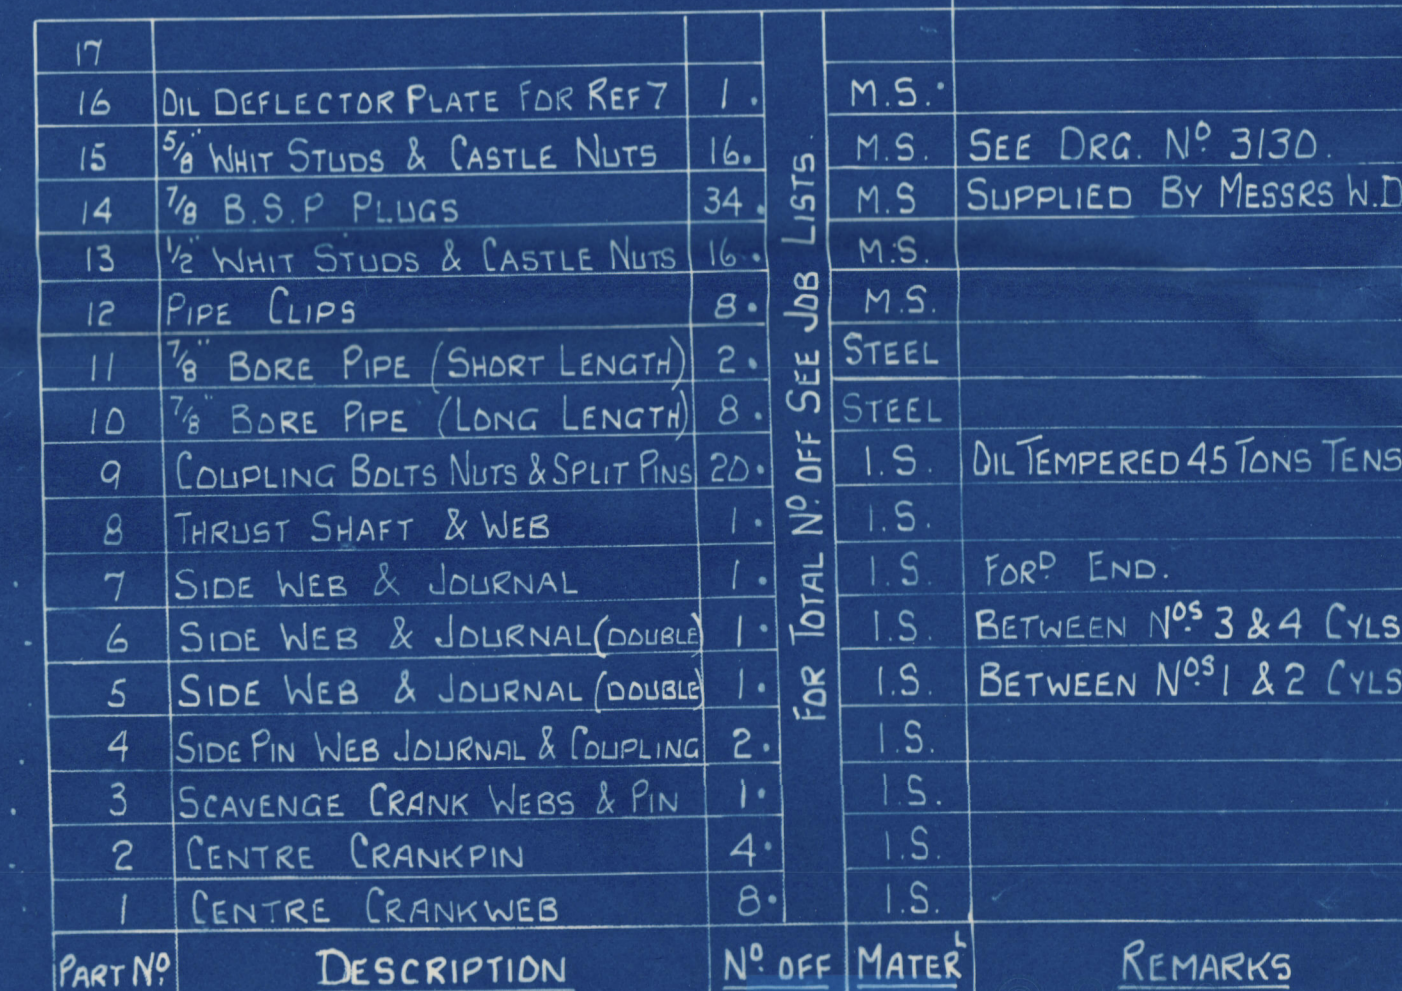 17
16 OIL DEFLECTOR PLATE FOR REF 7 1. M.S.
15 5/8" WHIT STUDS & CASTLE NUTS 16. M.S. SEE DRG. Nº 3130.
14 7/8 B.S.P PLUGS 34. M.S SUPPLIED BY MESSRS W.D
13 1/2" WHIT STUDS & CASTLE NUTS 16. M.S.
12 PIPE CLIPS 8. M.S.
11 7/8" BORE PIPE (SHORT LENGTH) 2. STEEL
10 7/8" BORE PIPE (LONG LENGTH) 8. STEEL
9 COUPLING BOLTS NUTS & SPLIT PINS 20. I.S. OIL TEMPERED 45 TONS TENS
8 THRUST SHAFT & WEB 1. I.S.
7 SIDE WEB & JOURNAL 1. I.S. FORD END.
6 SIDE WEB & JOURNAL (DOUBLE) 1. I.S. BETWEEN NOS 3 & 4 CYLS
5 SIDE WEB & JOURNAL (DOUBLE) 1. I.S. BETWEEN NOS 1 & 2 CYLS
4 SIDE PIN WEB JOURNAL & COUPLING 2. I.S.
3 SCAVENGE CRANK WEBS & PIN 1. I.S.
2 CENTRE CRANKPIN 4. I.S.
1 CENTRE CRANKWEB 8. I.S.
PART Nº DESCRIPTION Nº OFF MATERL REMARKS
FOR TOTAL Nº OFF SEE JOB LISTS.